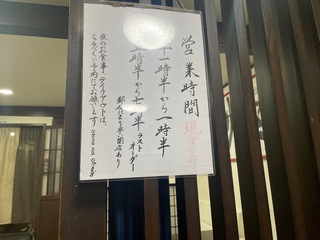 営業時間 現金のみ
十一時半から一時半
五時半から七時半 ラストオーダー
都合により早閉店あり
夜のお食事・テイクアウトは、
なるべくご予約にてお願いします